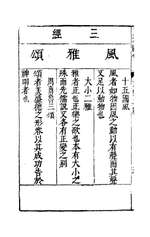 三經
風
雅
頌
十五國風
風者如物因風之動以有聲而其聲
又足以動物也
大小二雅
雅者正也正樂之歌也本有大小之
殊而先儒說又各有正變之別
周魯商三頌
頌者美盛德之形容以其成功告於
神明者也